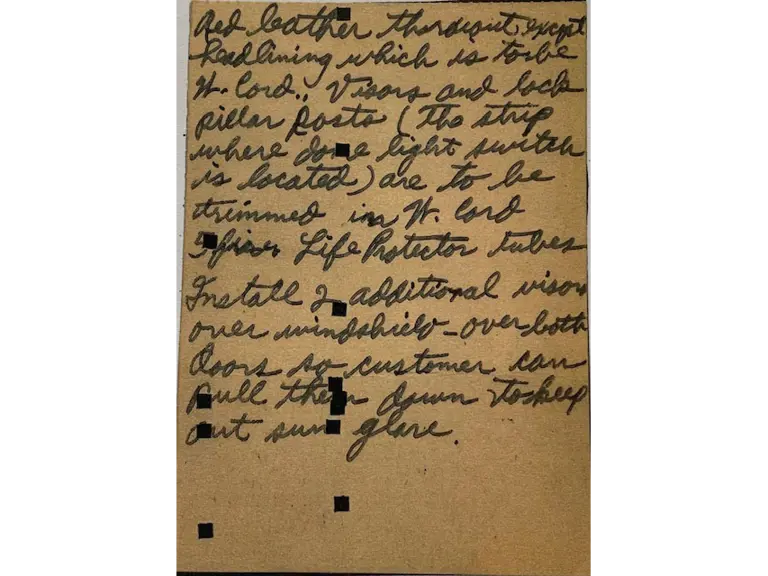 Red leather throughout, except
headlining which is to be
W. Cord.. Visors and lock
pillar posts (the strip
where dome light switch
is located) are to be
trimmed in W. Cord
Life Protector tubes
Install 2 additional visors
over windshield - over both
doors so customer can
pull them down to keep
out sun glare.